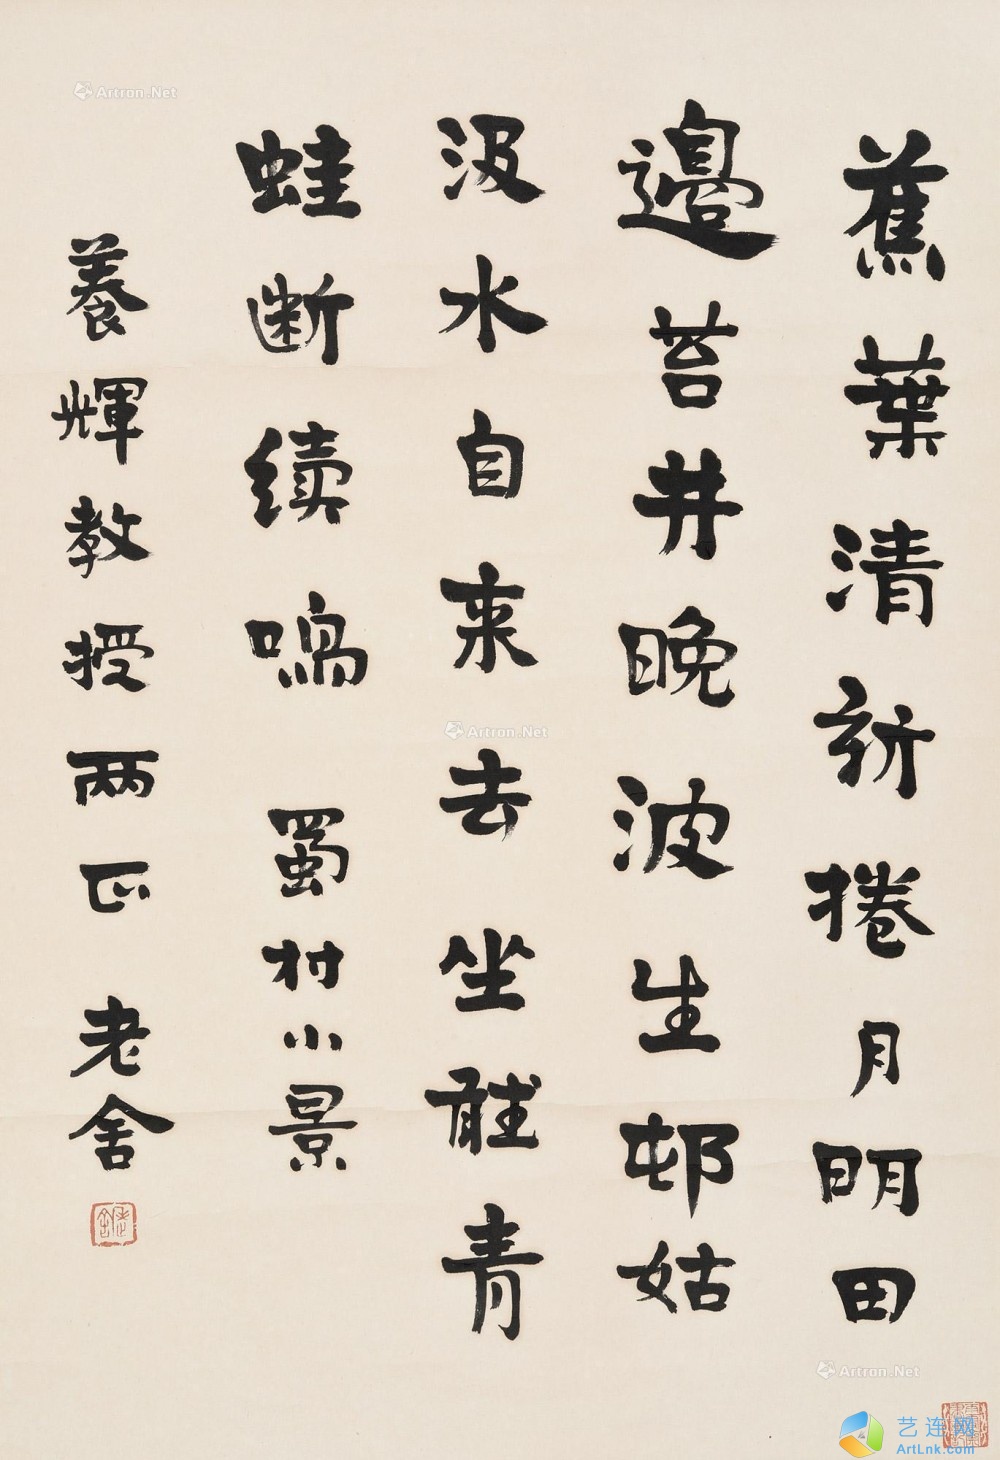 蕉葉清新捲月明田
邊苔井晚波生邨姑
汲水自来去坐聽青
蛙断续鳴 蜀村小景
養輝教授两正 老舍
老舍
Artron.Net
Artron.Net
Artron.Net
艺连网
ArtLnk.com